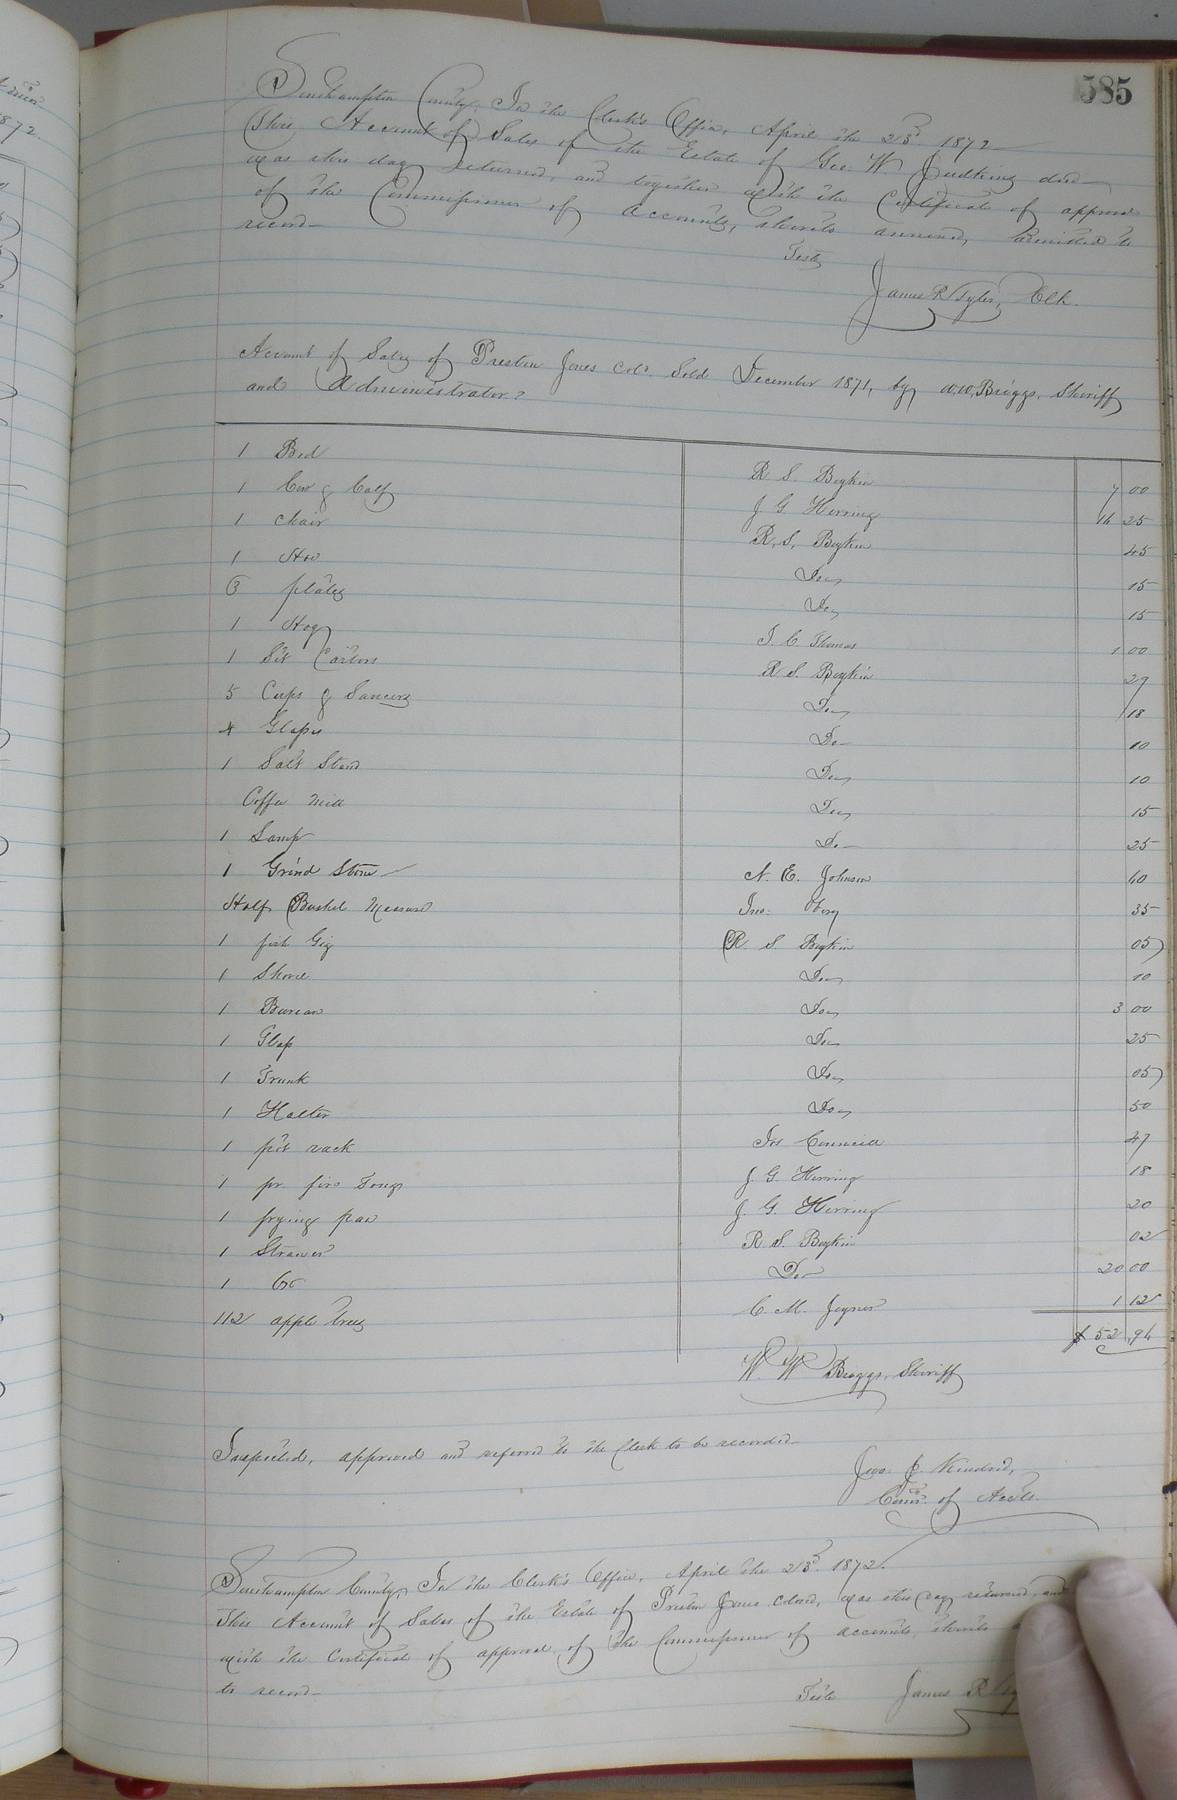 585
Southampton County, In the Clerk's Office, April the 23d 1872
This Account of Sales of the Estate of Geo. W. Judkins decd
was this day returned, and together with the Certificate of approval
of the Commissioner of Accounts, thereto annexed, admitted to
record
Teste
James R Tyler, Clk.
Account of Sales of Preston Jones Cold. Sold December 1871, by W.W. Briggs, Sheriff
and Administrator.
1 Bed R S Boykin 7 00
1 Cow & Calf J G Herring 16 25
1 Chair R. S. Boykin 45
1 Hoe Do 15
6 plates Do 15
1 Hog J. C Thomas 1 00
1 Set Castors R S. Boykin 27
5 Cups & Saucers Do 18
4 Glasses Do 10
1 Salt Stand Do 10
Coffee Mill Do 15
1 Lamp Do 25
1 Grind Stone N. E. Johnson 60
Half Bushel Measure Jno. 35
1 fish Gig R. S Boykin 05
1 Shovel Do 10
1 Bureau Do 3 00
1 Glass Do 25
1 Trunk Do 05
1 Halter Do 50
1 pot rack Jos Councill 47
1 pr. fire Tongs J. G. Herring 18
1 frying pan J. G. Herring 20
1 Strainer R. S. Boykin 02
1 Ox Do 20 00
112 apple trees C. M. Joyner 1 12
$52.94
W. W Briggs, Sheriff
Inspected, approved and referred to the Clerk to be recorded
Jno. J Kindred,
Comr. of Accts.
Southampton County, In the Clerk's Office, April the 23d. 1872.
This Account of Sales of the Estate of Preston Jones Colored, was this day returned, and
with the Certificate of approval of the Commissioner of accounts, thereto
to record
Teste James R